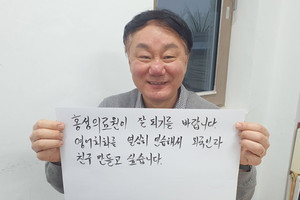 홍성의료원이 잘 되기를 바랍니다.
영어회화를 열심히 연습해서 외국인과
친구 만들고 싶습니다.